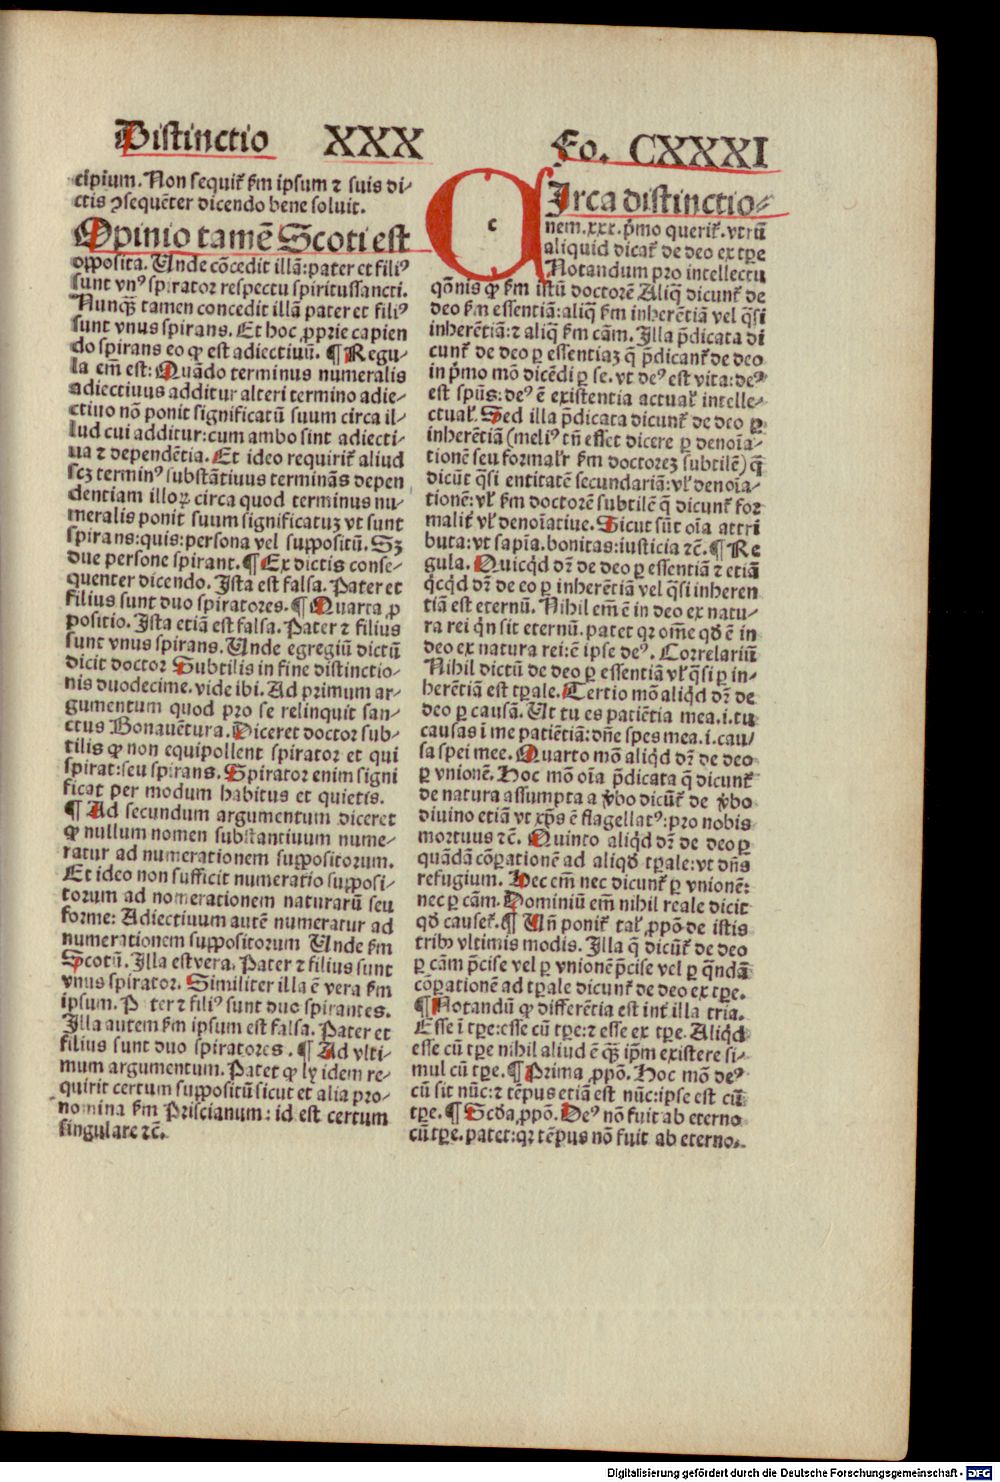 Distinctio XXX Fo. CXXXI
cipium. Non sequit᷒ ẜm ipsum ⁊ suis di⸗
ctis ꝯsequēter dicendo bene soluit.
Opinio tamē Scoti est
opposita. Unde cōcedit illā: pater et filiꝰ
sunt vnꝰ spirator respectu spiritussancti.
Nunqꝫ tamen concedit illā pater et filiꝰ
sunt vnus spirans. Et hoc ꝓprie capien
do spirans eo ꝙ est adiectiuū. ¶ Regu⸗
la em̄ est: Quādo terminus numeralis
adiectiuus additur alteri termino adie⸗
ctiuo nō ponit significatū suum circa il⸗
lud cui additur: cum ambo sint adiecti⸗
ua ⁊ dependētia. Et ideo requirit᷒ aliud
scꝫ terminꝰ substātiuus terminās depen
dentiam illoꝝ circa quod terminus nu⸗
meralis ponit suum significatuꝫ vt sunt
spirans: quis: persona vel suppositū. Sꝫ
due persone spirant. ¶ Ex dictis conse⸗
quenter dicendo. Ista est falsa. Pater et
filius sunt duo spiratores. ¶ Quarta ꝓ
positio. Ista etiā est falsa. Pater ⁊ filius
sunt vnus spirans. Unde egregiū dictū
dicit doctor Subtilis in fine distinctio⸗
nis duodecime. vide ibi. Ad primum ar⸗
gumentum quod pro se relinquit san⸗
ctus Bonauētura. Diceret doctor sub⸗
tilis ꝙ non equipollent spirator et qui
spirat: seu spirans. Spirator enim signi
ficat per modum habitus et quietis.
¶ Ad secundum argumentum diceret
ꝙ nullum nomen substantiuum nume⸗
ratur ad numerationem suppositorum.
Et ideo non sufficit numeratio supposi⸗
torum ad nomerationem naturarū seu
forme: Adiectiuum autē numeratur ad
numerationem suppositorum Unde ẜm
Scotū. Illa est vera. Pater ⁊ filius sunt
vnus spirator. Similiter illa ē vera ẜm
ipsum. P ter ⁊ filiꝰ sunt duo spirantes.
Illa autem ẜm ipsum est falsa. Pater et
filius sunt duo spiratores. ¶ Ad vlti⸗
mum argumentum. Patet ꝙ ly idem re⸗
quirit certum suppositū sicut et alia pro⸗
nomina ẜm Priscianum: id est certum
singulare ⁊c̄.
c
Irca distinctio⸗
nem. xxx. p̄mo querit᷒. vtrū
aliquid dicat᷒ de deo ex tꝑe
Notandum pro intellectu
q̄onis ꝙ ẜm istū doctorē Aliq̄ dicunt᷒ de
deo ẜm essentiā: aliq̄ ẜm inherētiā vel q̄si
inherētiā: ⁊ aliq̄ ẜm cām. Illa p̄dicata di
cunt᷒ de deo ꝑ essentiaꝫ q̄ p̄dicant᷒ de deo
in p̄mo mō dicēdi ꝑ se. vt deꝰ est vita: deꝰ
est spūs: deꝰ ē existentia actual᷒ intelle⸗
ctual᷒. Sed illa p̄dicata dicunt᷒ de deo ꝑ
inherētiā (meliꝰ tn̄ esset dicere ꝑ denoīa⸗
tionē seu formal᷒r ẜm doctoreꝫ subtilē) q̄
dicūt q̄si entitatē secundariā: vl᷒ denoīa⸗
tionē: vl᷒ ẜm doctorē subtilē q̄ dicunt᷒ for
malit᷒ vl᷒ denoīatiue. Sicut sūt oīa attri
buta: vt sapīa. bonitas: iusticia ⁊c̄. ¶ Re
gula. Quicqd dr̄ de deo ꝑ essentiā ⁊ etiā
qͥcqͥd dr̄ de eo ꝑ inherētiā vel q̄si inheren
tiā est eternū. Nihil em̄ ē in deo ex natu⸗
ra rei qͥn sit eternū. patet qꝛ om̄e qd̄ ē in
deo ex natura rei: ē ipse deꝰ. Correlariū
Nihil dictū de deo ꝑ essentiā vl᷒ q̄si ꝑ in⸗
herētiā est tꝑale. Tertio mō aliqͥd dr̄ de
deo ꝑ causā. Ut tu es patiētia mea. i. tu
causas ī me patiētiā: dn̄e spes mea. i. cau⸗
sa spei mee. Quarto mō aliqͥd dr̄ de deo
ꝑ vnionē. Hoc mō oīa p̄dicata q̄ dicunt᷒
de natura assumpta a v̄bo dicūt᷒ de v̄bo
diuino etiā vt xp̄s ē flagellatꝰ: pro nobis
mortuus ⁊c̄. Quinto aliqͥd dr̄ de deo ꝑ
quādā cōꝑationē ad aliqd̄ tꝑale: vt dn̄s
refugium. Hec em̄ nec dicunt᷒ ꝑ vnionē:
nec ꝑ cām. Dominiū em̄ nihil reale dicit
qd̄ causet᷒. ¶ Un̄ ponit᷒ tal᷒ ꝓpō de istis
tribꝫ vltimis modis. Illa q̄ dicūt᷒ de deo
ꝑ cām p̄cise vel ꝑ vnionē p̄cise vel ꝑ q̄ndā
cōꝑationē ad tꝑale dicunt᷒ de deo ex tꝑe.
¶ Notandū ꝙ differētia est int᷒ illa tria.
Esse ī tꝑe: esse cū tꝑe: ⁊ esse ex tꝑe. Aliqd̄
esse cū tꝑe nihil aliud ē qꝫ ip̄m existere si⸗
mul cū tꝑe. ¶ Prima ꝓpō. Hoc mō deꝰ
cū sit nūc: ⁊ tēpus etiā est nūc: ipse est cū
tꝑe. ¶ Scd̄a ꝓpō. Deꝰ nō fuit ab eterno
cū tꝑe. patet: qꝛ tēpus nō fuit ab eterno.
Digitalisierung gefördert durch die Deutsche Forschungsgemeinschaft - DFG